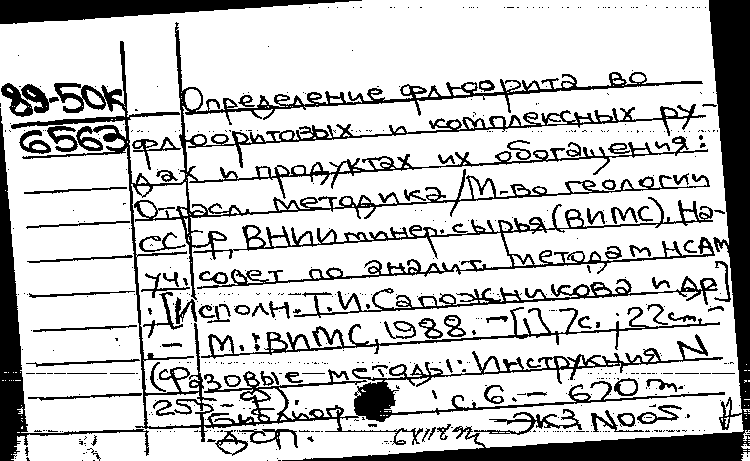 89-50К
6563
Определение флюорита во
флюоритовых и комплексных ру-
дах и продуктах их обогащения:
Отрасл. методика/М-во геологии
СССР, ВНИИ минер. сырья (ВИМС). На-
уч. совет по аналит. методам НСАМ
; [Исполн. Т.И. Сапожникова и др]
. - М.: ВИМС, 1988. - [1], 7с.; 22см. -
(Фазовые методы: Инструкция N
255-Ф).
Библиогр. : с. 6. - 670 т.
ДСП. - ЭКЗ N005.